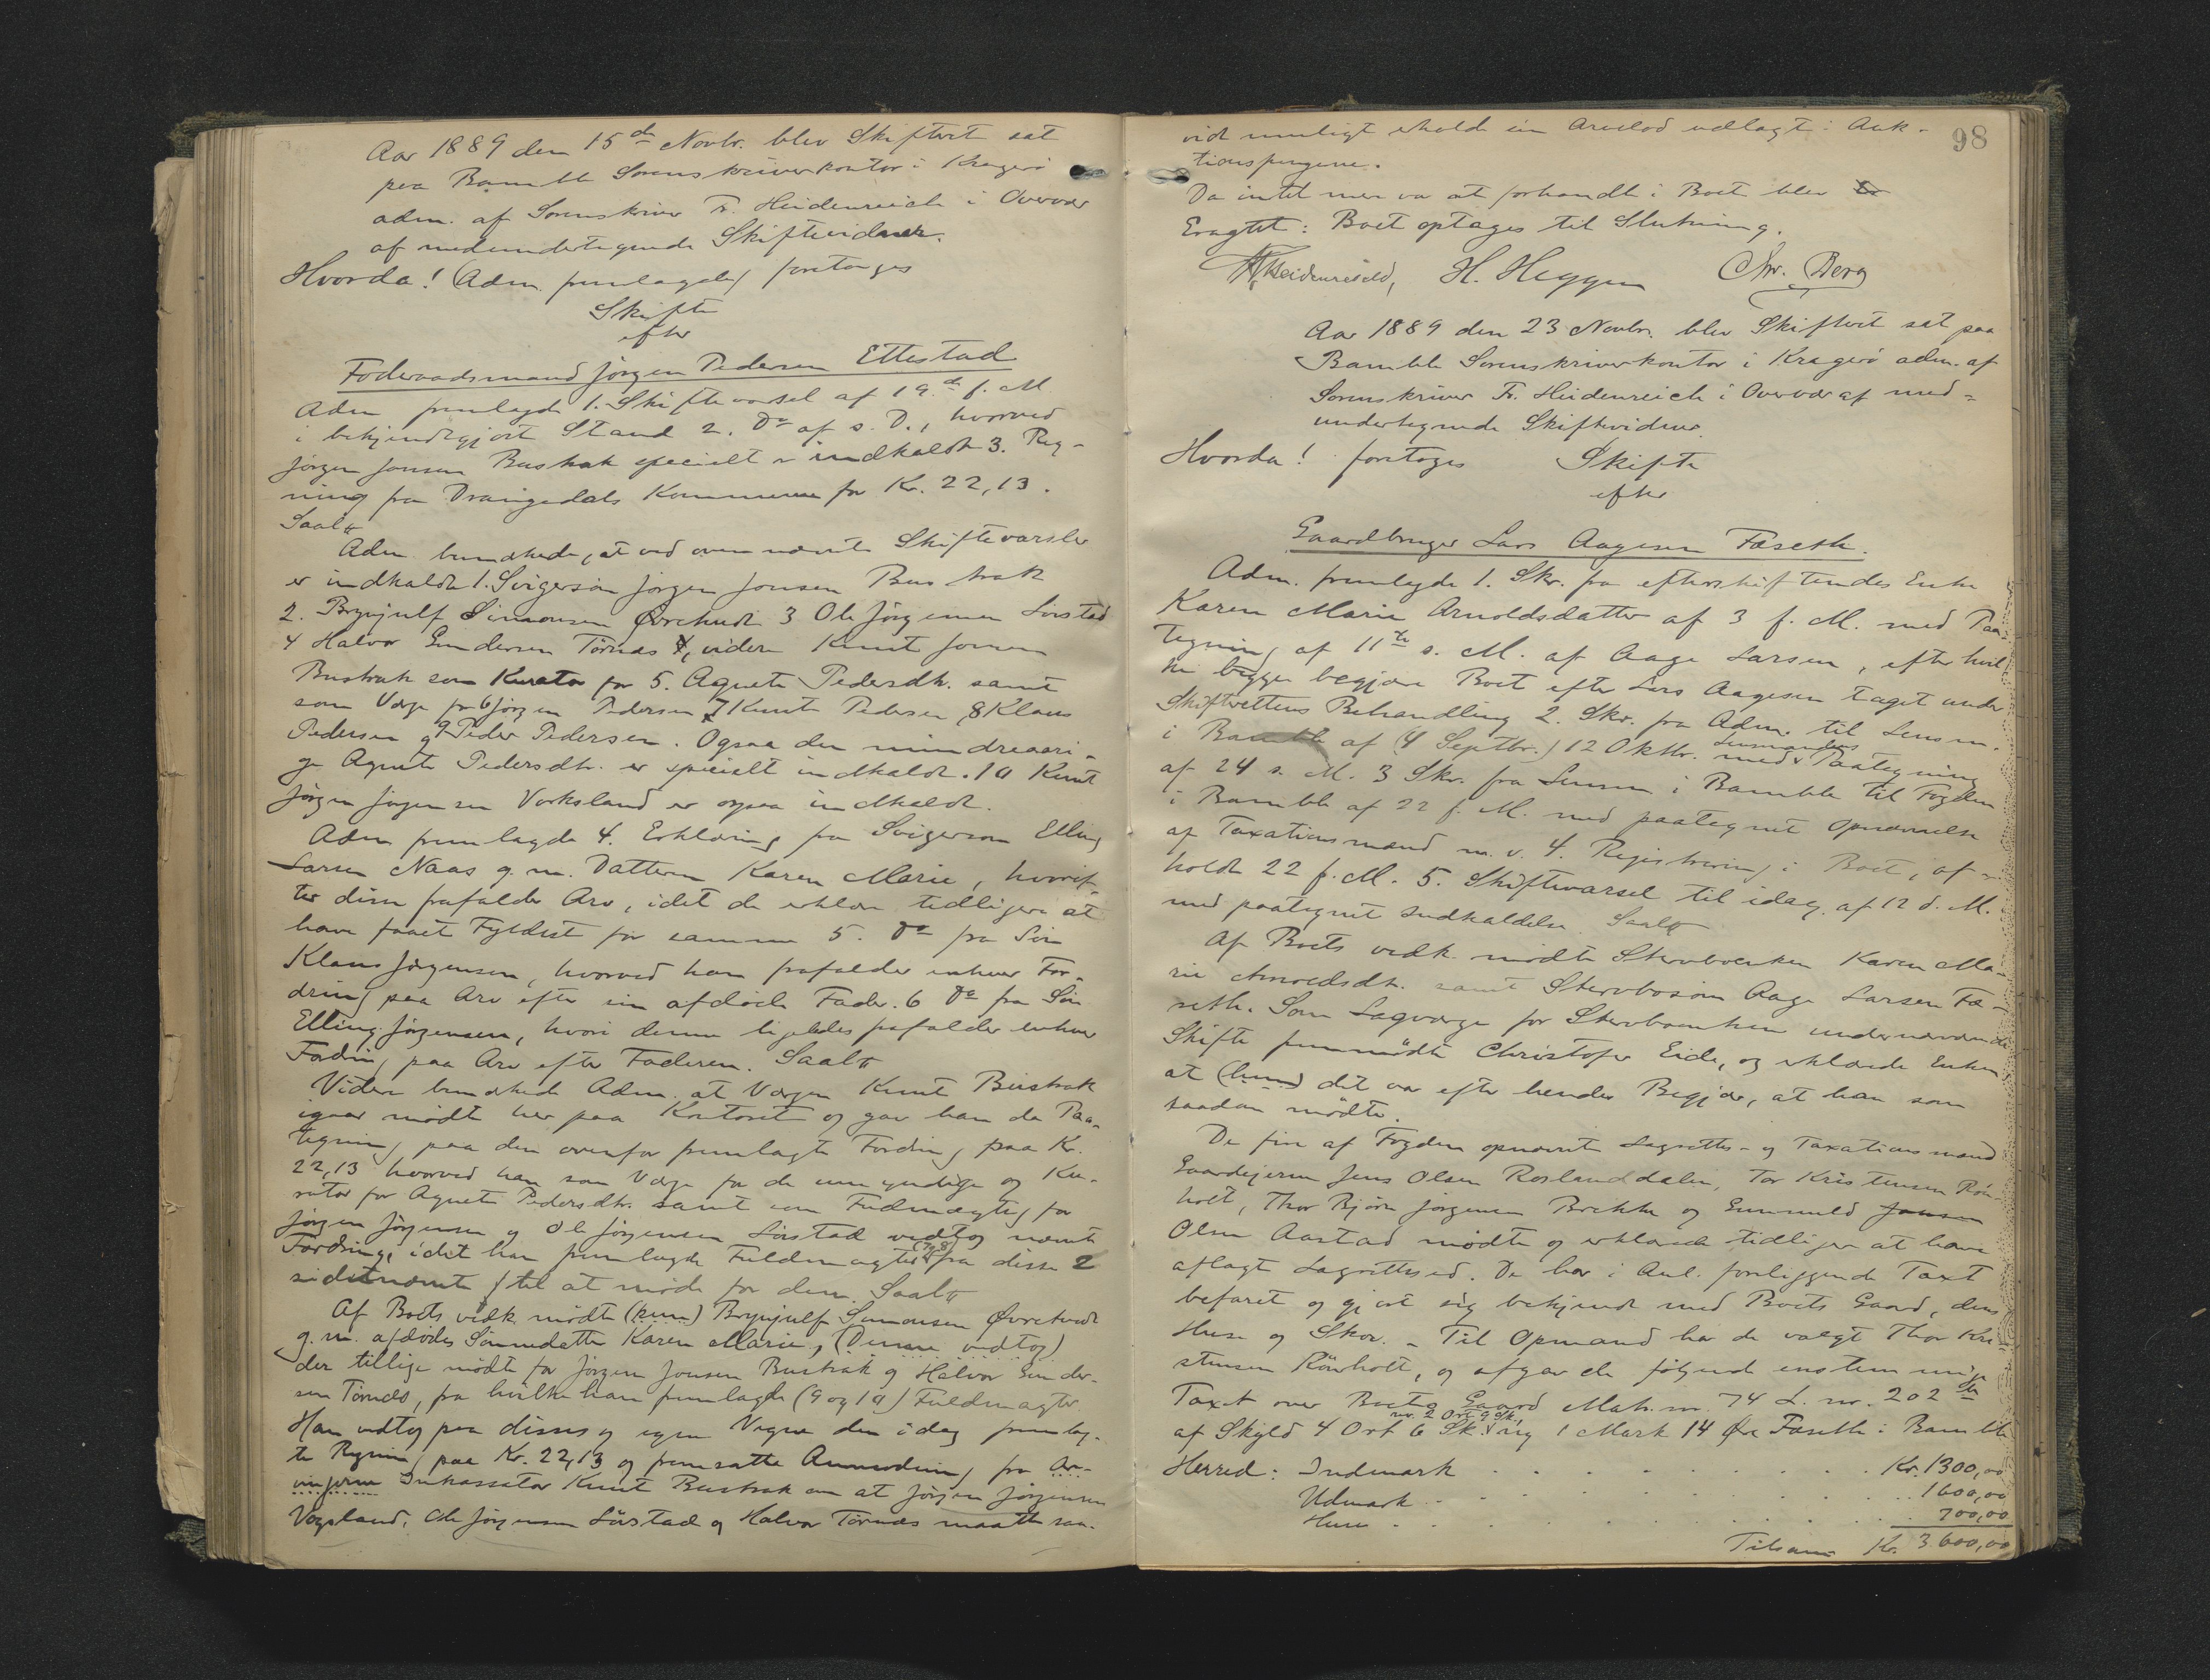 Aar 1889 den 15de Novbr. blev Skifteret sat
paa Bamble Sorenskriverkontor i Kragerö
adm. af Sorenskriver Fr. Heidenreich i Overvær
af medundertegnede Skiftevidner.
Hvorda! (Adm. fremlagde) foretoges
Skifte
efter
Föderaadsmand Jörgen Pedersen Ettestad
Adm fremlagde 1. Skiftevarsel af 19de f. M.
i bekjendtgjort Stand 2. Do af s. D., hvorved
Jörgen Jonsen Bustrak specielt er indkaldt 3. Reg-
ning fra Drangedals Kommune for Kr. 22,13.
Saal.
Adm. bemærkede, at ved ovennævnte Skiftevarsler
er indkaldt 1. Svigersön Jörgen Jonsen Bustrak
2. Brynjulf Simonsen Øvretvedt 3 Ole Jörgensen Lörstad
4 Halvor Gundersen Törnæs, videre Knut Jonsen
Bustrak som Kurator for 5. Agnete Pedersdtr. samt
som Værge for 6 Jörgen Pedersen 7 Knut Pedersen, 8 Klaus
Pedersen og 9 Peder Pedersen. Ogsaa den mindreaari-
ge Agnete Pedersdtr. er specielt indkaldt. 10 Knut
Jörgen Jörgensen Vorksland er ogsaa indkaldt.
Adm fremlagde 4. Erklæring fra Svigersön Elling
Larsen Naas g. m. Datteren Karen Marie, hvoref-
ter disse frafalder Arv, idet de erklærer tidligere at
have faaet Fyldest for samme 5. Do fra Sön
Klaus Jörgensen, hvorved han frafalder enhver For-
dring paa Arv efter sin afdöde Fader. 6 Do fra Sön
Elling Jörgensen, hvori denne ligeledes frafalder enhver
Fordring paa Arv efter Faderen. Saal.
Videre bemærkede Adm. at Værgen Knut Bustrak
igaar mödte her paa Kontoret og gav han da Paa-
tegning paa den ovenfor fremlagte Fordring paa Kr.
22,13 hvorved han som Værge for de umyndige og Ku-
rator for Agnete Pedersdtr. samt som Fuldmægtig for
Jörgen Jörgensen og Ole Jörgensen Lörstad vedtog nævnte
Fordring, idet han fremlagde Fuldmagter (7 og 8) fra disse 2
sidstnævnte til at möde for dem. Saal.
Af Boets vedk. mödte (kun) Brynjulf Simonsen Øvretvedt
g. m. afdödes Sönnedatter Karen Marie, (Denne vedtog)
der tillige mödte for Jörgen Jonsen Bustrak og Halvor Gunder-
sen Törnæs, fra hvilke han fremlagde (9 og 10) Fuldmagter.
Han vedtog paa disses og egne Vegne den idag fremlag-
te Regning paa Kr. 22,13 og fremsatte Anmodning fra Ar-
vingerne Inkassator Knut Bustrak om at Jörgen Jörgensen
Vorgsland, Ole Jörgensen Lörstad og Halvor Törnæs maatte saa-
98
vidt muligt erholde sin Arvelod udlagt i Auk-
tionspengene.
Da intet mer var at forhandle i Boet blev
Eragtet: Boet optages til Slutning.
Fr. Heidenreich, H. Heggen Chr. Berg
Aar 1889 den 23 Novbr. blev Skifteret sat paa
Bamble Sorenskriverkontor i Kragerö adm. af
Sorenskriver Fr. Heidenreich i Overvær af med-
undertegnede Skiftevidner.
Hvorda! foretoges Skifte
efter
Gaardbruger Lars Aagesen Fæseth.
Adm. fremlagde 1. Skr. fra efterskiftendes Enke
Karen Marie Arnoldsdatter af 3 f. M. med Paa-
tegning af 11te s. M. af Aage Larsen, efter hvil-
ke begge begjære Boet efter Lars Aagesen taget under
Skifterettens Behandling 2. Skr. fra Adm. til Lensm.
i Bamble af (4 Septbr.) 12 Oktbr. med Lensmandens Paategning
af 24 s. M. 3 Skr. fra Lensm i Bamble til Fogden
i Bamble af 22 f. M. med paategnet Opnævnelse
af Taxationsmænd m. v. 4. Registrering i Boet, af-
holdt 22 f. M. 5. Skiftevarsel til idag af 12 d. M.
med paategnet Indkaldelse. Saal.
Af Boets vedk. mödte Stervboenken Karen Ma-
rie Arnoldsdtr. samt Stervbosön Aage Larsen Fæ-
seth. Som Lagværge for Stervboenken under nærværende
Skifte fremmödte Christofer Eide, og erklærede Enken
at (hun) det var efter hendes Begjær, at han som
saadan mödte.
De fire af Fogden opnævnte Lagrettes- og Taxationsmænd
Gaardejerne Jens Olsen Roslanddalen, Tor Kristensen Rön-
holt, Thor Björn Jörgensen Brekke og Gunnuld Jonsen
Olsen Aastad mödte og erklærede tidligere at have
aflagt Lagrettesed. De har i Anl. foreliggende Taxt
befaret og gjort sig bekjendt med Boets Gaard, dens
Huse og Skov. – Til Opmand har de valgt Thor Kri-
stensen Rönholt, og afgav de følgende enstemmige
Taxt over Boets Gaard Matr. nr. 74 L. nr. 202 de
af Skyld 4 Ort 6 Sk. nv. 2 Ort 9 Sk., ny 1 Mark 14 Øre Fæseth i Bamble
Herred: Indmark . . . . . . . . Kr. 1300,00
Udmark . . . . . . . . 1600,00
Huse . . . . . . . . 700,00
Tilsam Kr. 3600,00